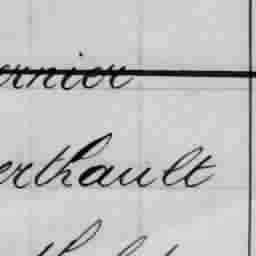 ernier
erthault